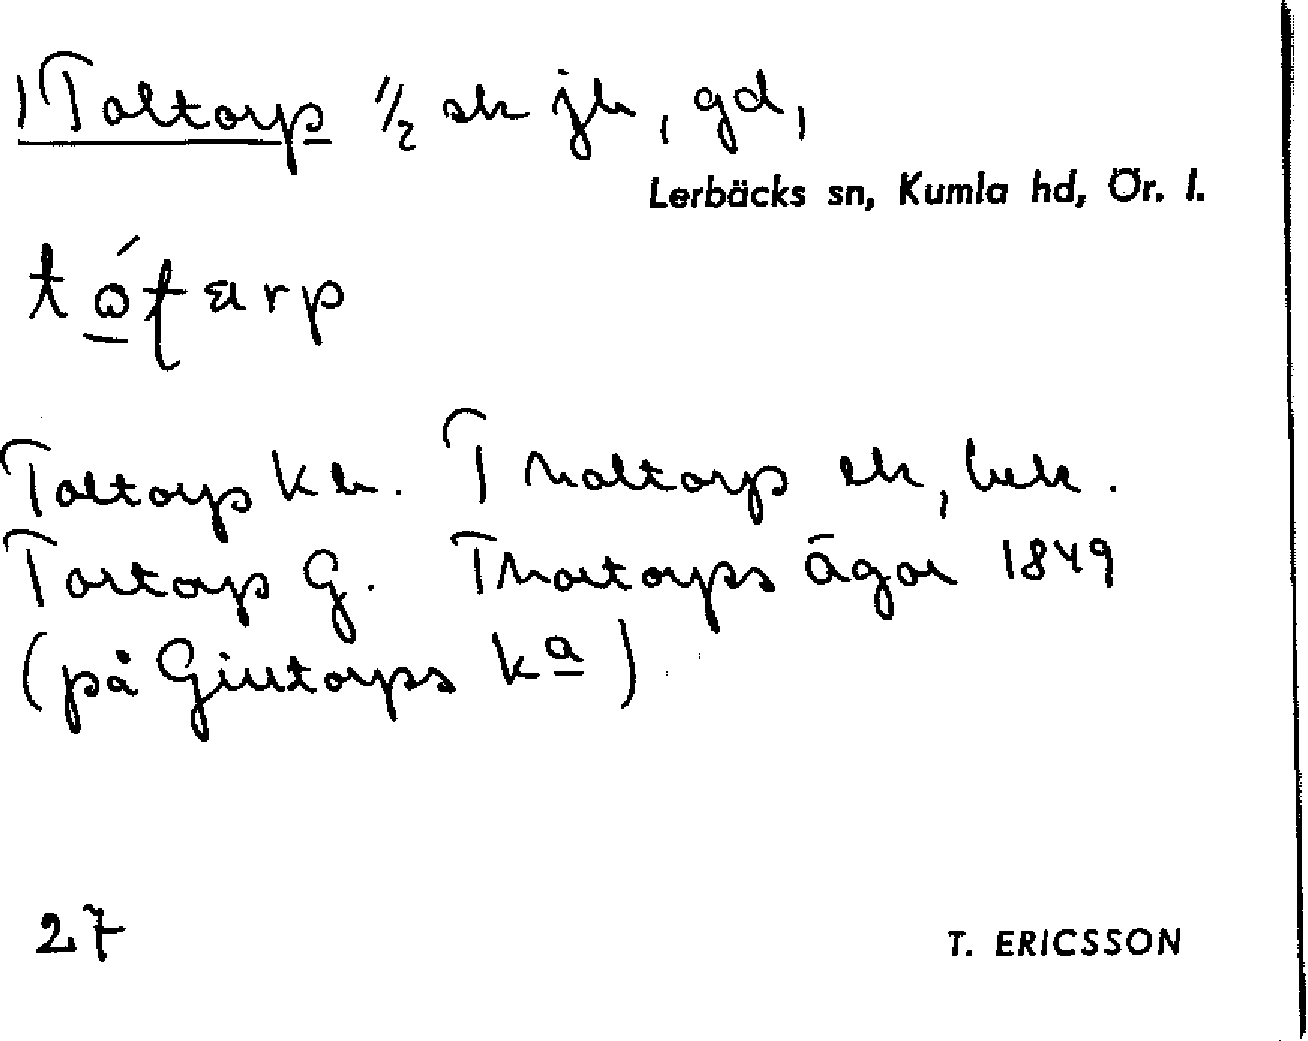 Toltorp 1/2 sk jb, gd,
Lerbäcks sn, Kumla hd, Ör. l.
Toltorp k b. Tholtorp ek, bek.
Tortorp G. Thortorps ägor 1849
(på Gintorps ka)
27
T. ERICSSON